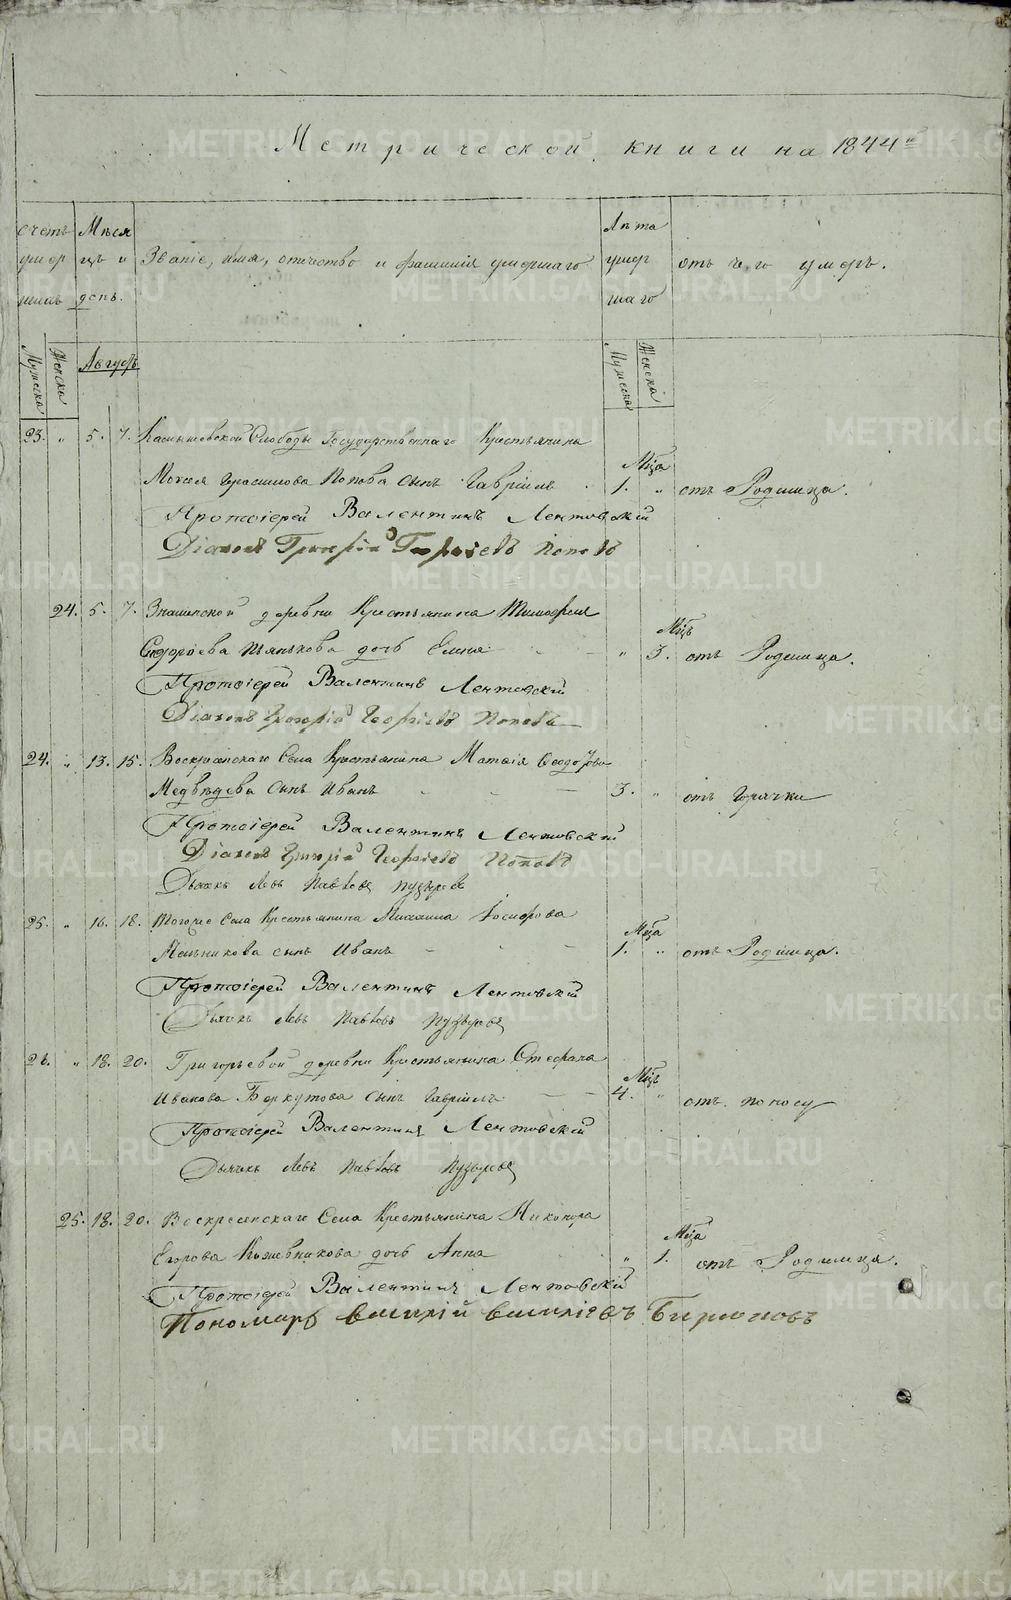 Метрической книги на 1844й
Счетъ умершихъ
Мѣсяцъ и день.
Званіе, имя, отчество и фамилія умершаго
Лѣта умершаго
отъ чего умеръ.
Мужеска
Женска
Августъ
Мужеска
Женска
23. „ 5. 7. Камышевской Слободы Государственнаго Крестьянина
Моисея Герасимова Попова сынъ Гавріилъ 1. Мца „ отъ Родимца.
Протоіерей Валентинъ Лентовскій
Діаконъ Григорій Георгіевъ Поповъ
24. 5. 7. Знаменской деревни Крестьянина Тимофея
Сидорова Пьянкова дочь Елена „ 3. Мцъ отъ Родимца.
Протоіерей Валентинъ Лентовскій
Діаконъ Григорій Георгіевъ Поповъ
24. „ 13. 15. Воскресенскаго Села Крестьянина Матвія Ѳеодорова
Медвѣдева сынъ Иванъ 3. „ отъ Горячки
Протоіерей Валентинъ Лентовскій
Діаконъ Григорій Георгіевъ Поповъ
Дьячекъ Левъ Павловъ Пузыревъ
25. „ 16. 18. Тогоже Села Крестьянина Михаила Іосифова
Мельникова сынъ Иванъ 1. Мца „ отъ Родимца.
Протоіерей Валентинъ Лентовскій
Дьячекъ Левъ Павловъ Пузыревъ
26. „ 18. 20. Григорьевой деревни Крестьянина Стефана
Иванова Беркутова сынъ Гавріилъ 4. Мцъ „ отъ поносу
Протоіерей Валентинъ Лентовскій
Дьячекъ Левъ Павловъ Пузыревъ
25. 18. 20. Воскресенскаго Села Крестьянина Никонора
Егорова Кожевникова дочь Анна „ 1. Мца отъ Родимца.
Протоіерей Валентинъ Лентовскій
Пономарь Василій Василіевъ Бирюковъ
METRIKI.GASO-URAL.RU